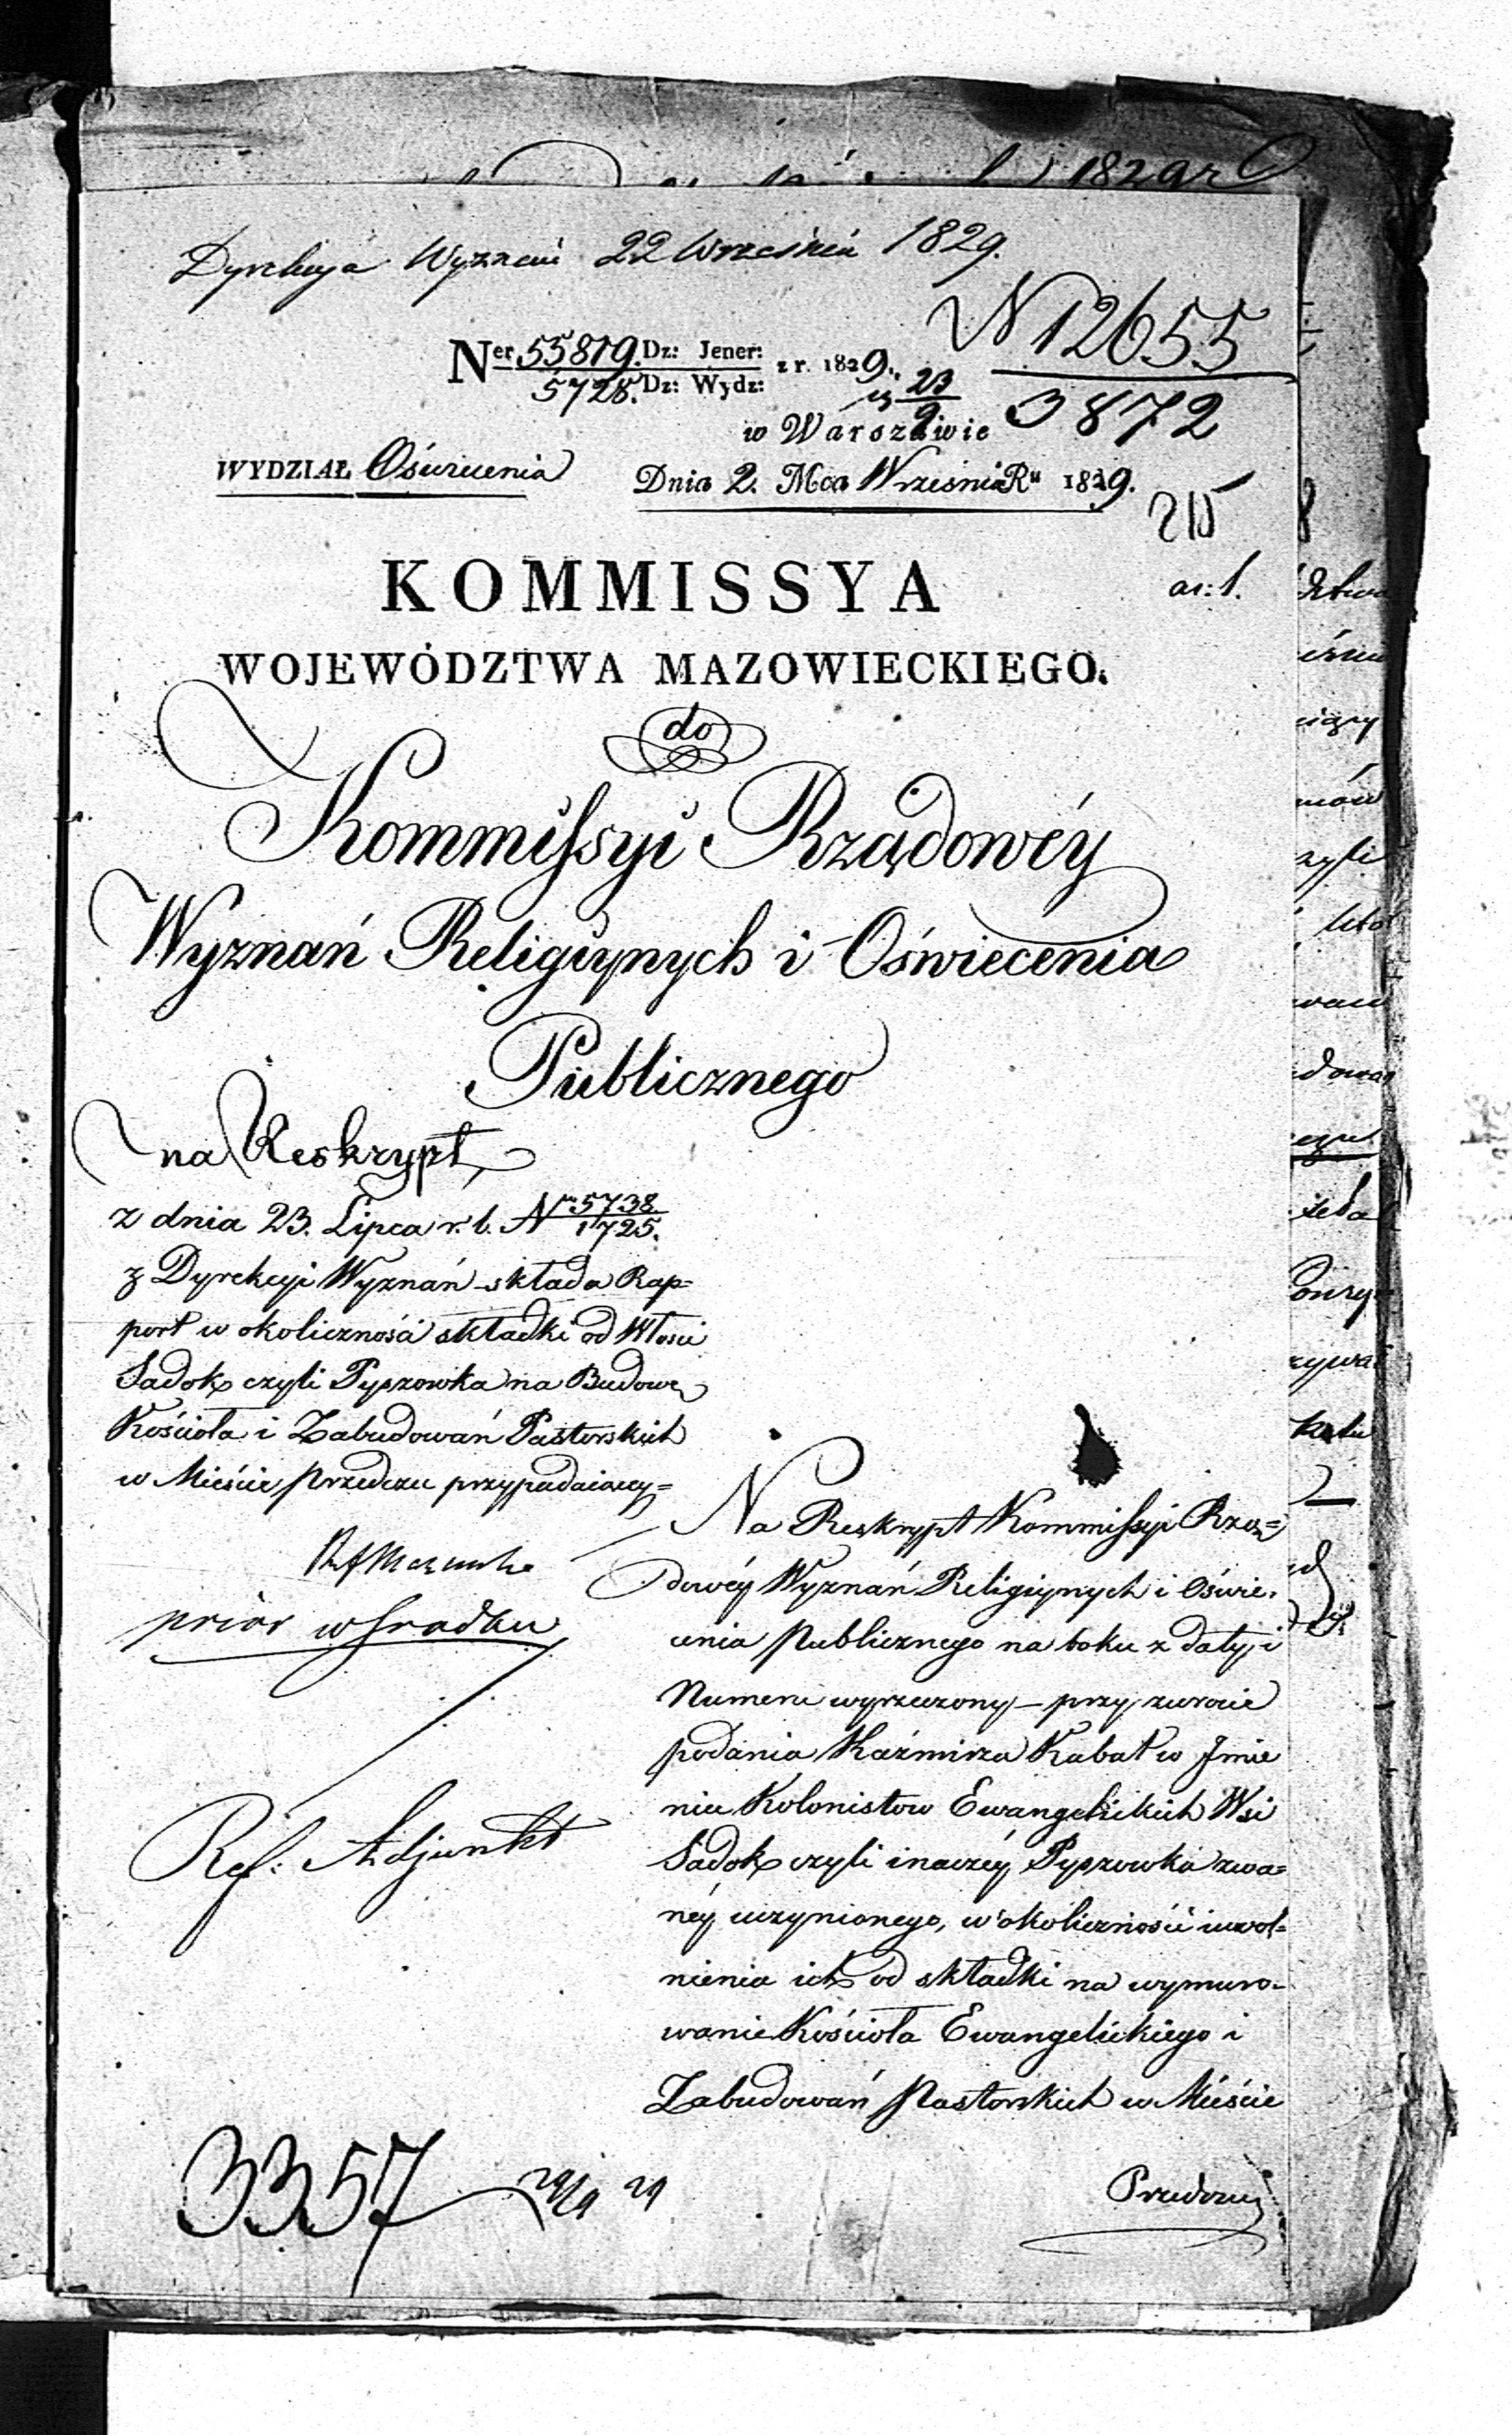 1829 r
Dyrekcya Wyznań 22 Września 1829.
N 12655
3872
Ner 55819. Dz: Jener: z r. 1829.
5728. Dz: Wydz:
23
9
w Warszawie
WYDZIAŁ Oświecenia
Dnia 2. Mca Września Ru 1829.
215
ar: 1.
KOMMISSYA
WOJEWÓDZTWA MAZOWIECKIEGO.
do
Kommissyi Rządowéy
Wyznań Religiynych i Oświecenia
Publicznego
na Reskrypt
z dnia 23. Lipca r. b. N 5738
1725.
z Dyrekcyi Wyznań składa Rap=
port w okoliczności składki od Włości
Sadok czyli Pyszowka na Budowę
Kościoła i Zabudowań Pastorskich
w Mieście Przedczu przypadaiącey=
prior w
Ref: Adjunkt
Na Reskrypt Kommissyi Rzą=
dowéy Wyznań Religiynych i Oświe=
cenia Publicznego na boku z daty i
Numeru wyrzeczony – przy zwrocie
podania Kaźmirza Kabat w Jmie
niu Kolonistow Ewangelickich Wsi
Sadok czyli inaczéy Pyszowka zwa=
néy uczynionego, w okoliczności uwol=
nienia ich od składki na wymuro=
wanie Kościoła Ewangelickiego i
Zabudowań Pastorskich w Mieście
Przedczu
3357